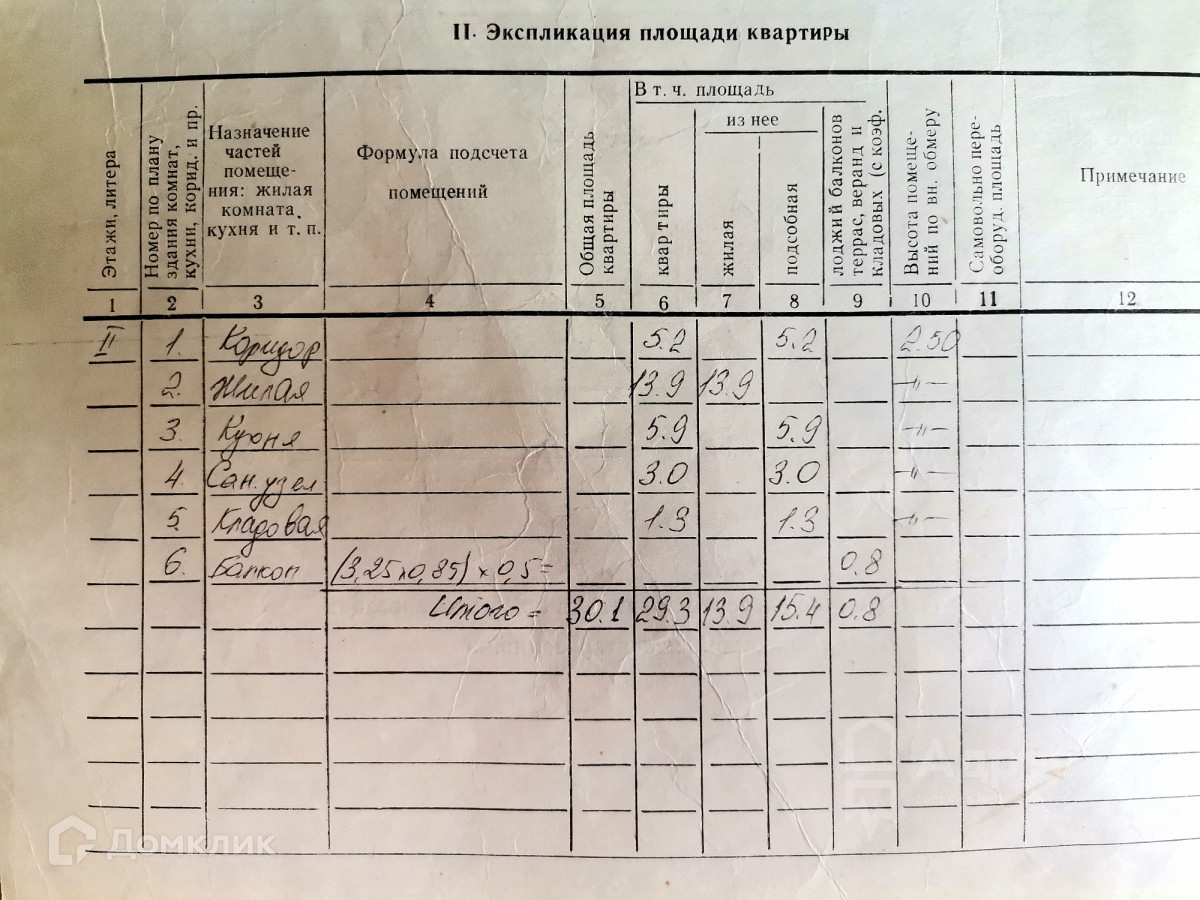 II. Экспликация площади квартиры
Этажи, литера
Номер по плану
здания комнат,
кухни, корид. и пр.
Назначение
частей
помеще-
ния: жилая
комната,
кухня и т. п.
Формула подсчета
помещений
Общая площадь
квартиры
В т. ч. площадь
из нее
квартиры
жилая
подсобная
лоджий балконов
террас, веранд и
кладовых (с коэф.
Высота помеще-
ний по вн. обмеру
Самовольно пере-
оборуд. площадь
Примечание
1 2 3 4 5 6 7 8 9 10 11 12
II 1. Коридор 5.2 5.2 2.50
2. Жилая 13.9 13.9 -"-
3. Кухня 5.9 5.9 -"-
4. Сан.узел 3.0 3.0 -"-
5. Кладовая 1.3 1.3 -"-
6. Балкон (3,25х0,85)х0,5= 0.8
Итого = 30.1 29.3 13.9 15.4 0.8
Домклик